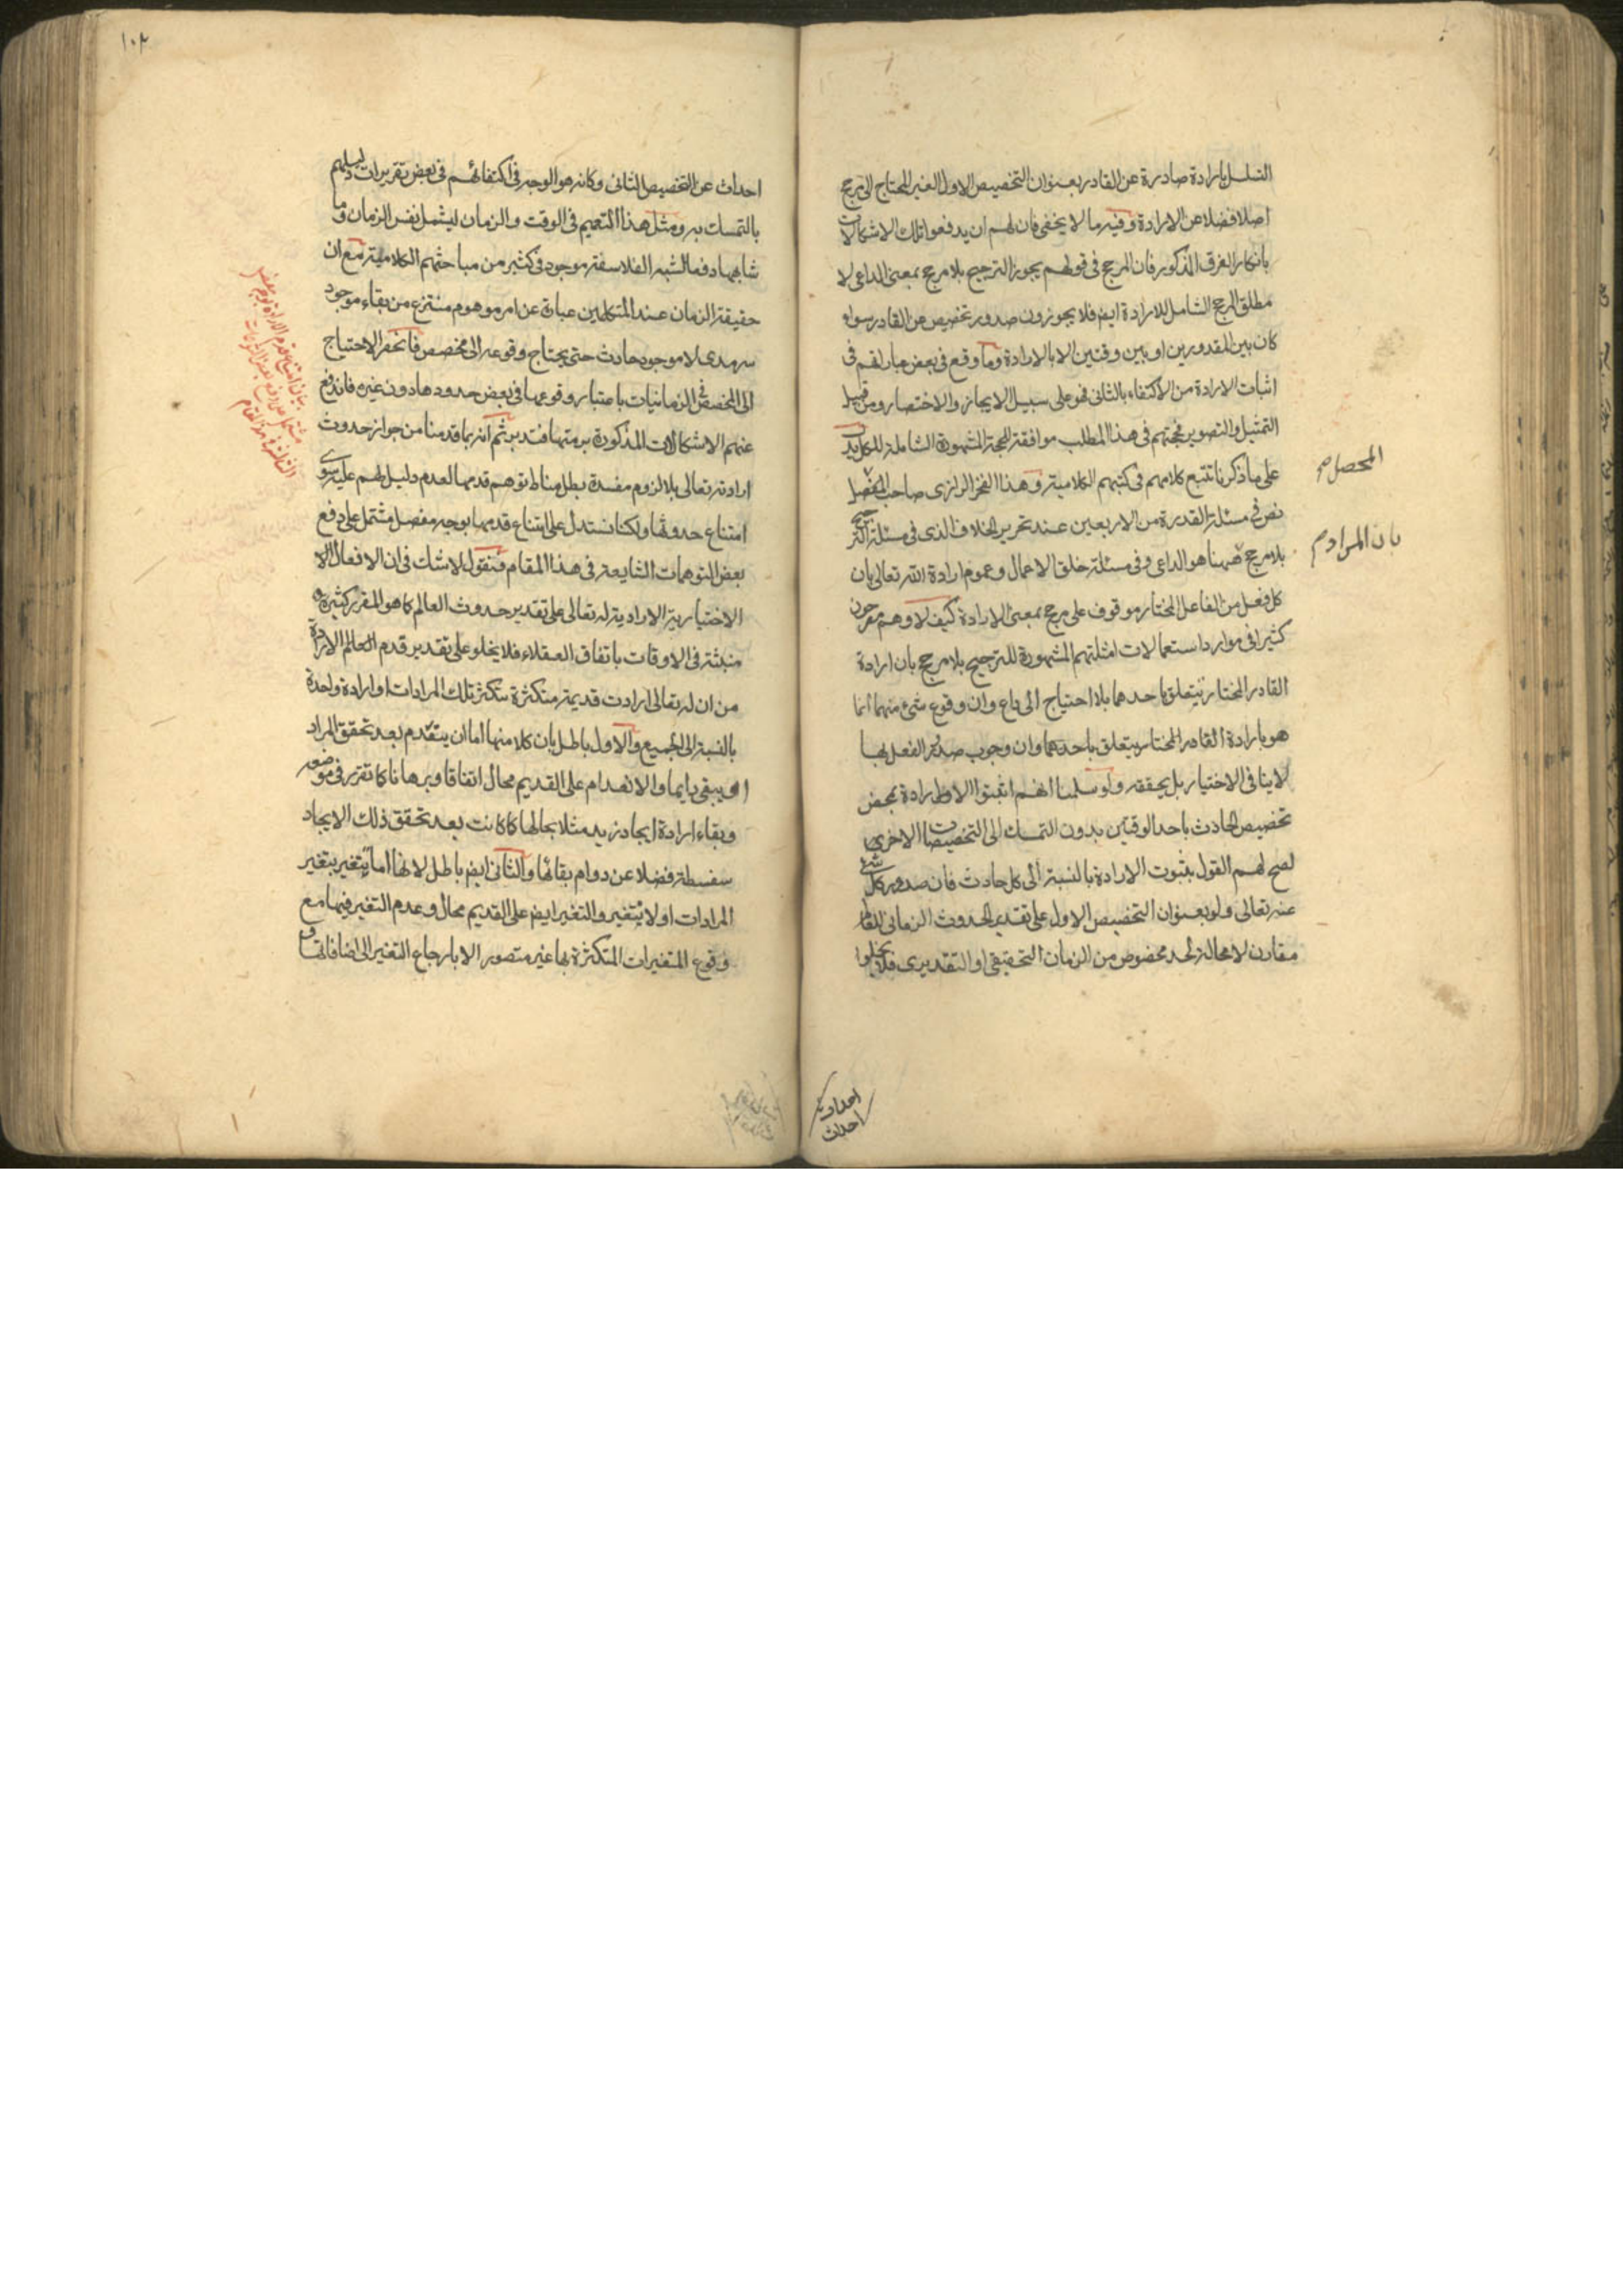 التسلسل بارادة صادرة عن القادر بعنوان التخصيص الاول الغير المحتاج الى مرجح
اصلا فضلا عن الارادة وفيه ما لا يخفى فان لهم ان يدفعوا تلك الاشكالات
بانكار الفرق المذكور فان المرجح فى قولهم يجوز الترجيح بلا مرجح بمعنى الداعى لا
مطلق المرجح الشامل للارادة ايضم فلا يجوزون صدور تخصيص عن القادر سواء
كان بين المقدورين او بين وقتين الا بالارادة وما وقع فى بعض عباراتهم فى
اثبات الارادة من الاكتفاء بالثانى فهو على سبيل الايجاز والاختصار ومن قبيل
التمثيل والتصوير فحجتهم فى هذا المطلب موافقة للحجة المشهورة الشاملة للكل يدل
على ما ذكرنا تتبع كلامهم فى كتبهم الكلامية وهذا الفخر الرازى صاحب
المحصل صح
نص فى مسئلة القدرة من الاربعين عند تحرير الخلاف الذى فى مسئلة الترجيح
بلا مرجح ههنا هو الداعى وفى مسئلة خلق الاعمال وعموم ارادة الله تعالى بان
بان المرادم
كل فعل من الفاعل المختار موقوف على مرجح بمعنى الارادة كيف لا وهم مصرحون
كثيرا فى موارد استعمالات امثلتهم المشهورة للترجيح بلا مرجح بان ارادة
القادر المختار يتعلق باحدهما بلا احتياج الى داع وان وقوع شئ منهما انما
هو بارادة القادر المختار يتعلق باحدهما وان وجوب صدور الفعل بها
لا ينافى الاختيار بل يحققه ولو سلمنا انهم اثبتوا الارادة بمحض
تخصيص الحادث باحد الوقتين بدون التمسك الى التخصيصات الاخرى
لصح لهم القول بثبوت الارادة بالنسبة الى كل حادث فان صدور كل شئ
عنه تعالى ولو بعنوان التخصيص الاول على تقدير الحدوث الزمانى للعالم
مقارن لا محالة لحد مخصوص من الزمان التحقيقى او التقديرى فلا يخلوا
احداث
احداث عن التخصيص الثانى وكانه هو الوجه فى اكتفائهم فى بعض تقريرات دليلهم
بالتمسك به ومثل هذا التعميم فى الوقت والزمان ليشمل نفس الزمان وما
شابهها دفعا لشبه الفلاسفة موجود فى كثير من مباحثهم الكلامية مع ان
حقيقة الزمان عند المتكلمين عبارة عن امر موهوم منتزع من بقاء موجود
سرمدى لا موجود حادث حتى يحتاج وقوعه الى مخصص فانحصر الاحتياج
الى المخصص فى الزمانيات باعتبار وقوعها فى بعض حدودها دون غيره فاندفع
عنهم الاشكالات المذكورة برمتها فتدبر ثم انه بما قدمنا من جواز حدوث
ارادته تعالى بلا لزوم مفسدة بطل مناط توهم قدمها لعدم دليل لهم عليه سوى
امتناع حدوثها ولكنا نستدل على امتناع قدمها بوجه مفصل مشتمل على دفع
بعض التوهمات الشايعة فى هذا المقام فنقول لا شك فى ان الافعال
الاختيارية الارادية له تعالى على تقدير حدوث العالم كما هو المقرر كثيرة
منبثة فى الاوقات باتفاق العقلاء فلا يخلو على تقدير قدم العالم الارادة
من ان له تعالى ارادت قديمة متكثرة بتكثر تلك المرادات او ارادة واحدة
بالنسبة الى الجميع والاول باطل بان كلا منها اما ان ينعدم بعد تحقق المراد
او يبقى دايما والانعدام على القديم محال اتفاقا وبرهانا كما تقرر فى موضعه
وبقاء ارادة ايجاد زيد مثلا بحالها كما كانت بعد تحقق ذلك الايجاد
سفسطة فضلا عن دوام بقائها والثانى ايضم باطل لانها اما يتغير بتغير
المرادات او لا يتغير والتغير ايضم على القديم محال وعدم التغير فيها مع
وقوع المتغيرات المتكثرة بها غير متصور الا بارجاع التغير الى اضافاتها